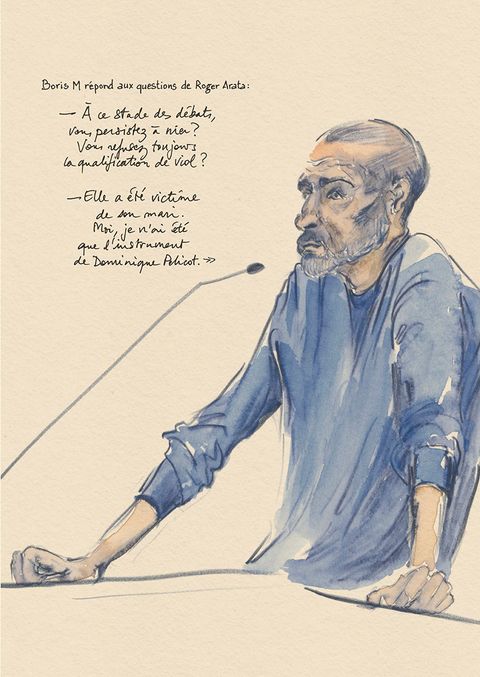 Boris M répond aux questions de Roger Arata :
— À ce stade des débats,
vous persistez à nier ?
Vous refusez toujours
la qualification de viol ?
— Elle a été victime
de son mari.
Moi, je n'ai été
que l'instrument
de Dominique Pelicot. »